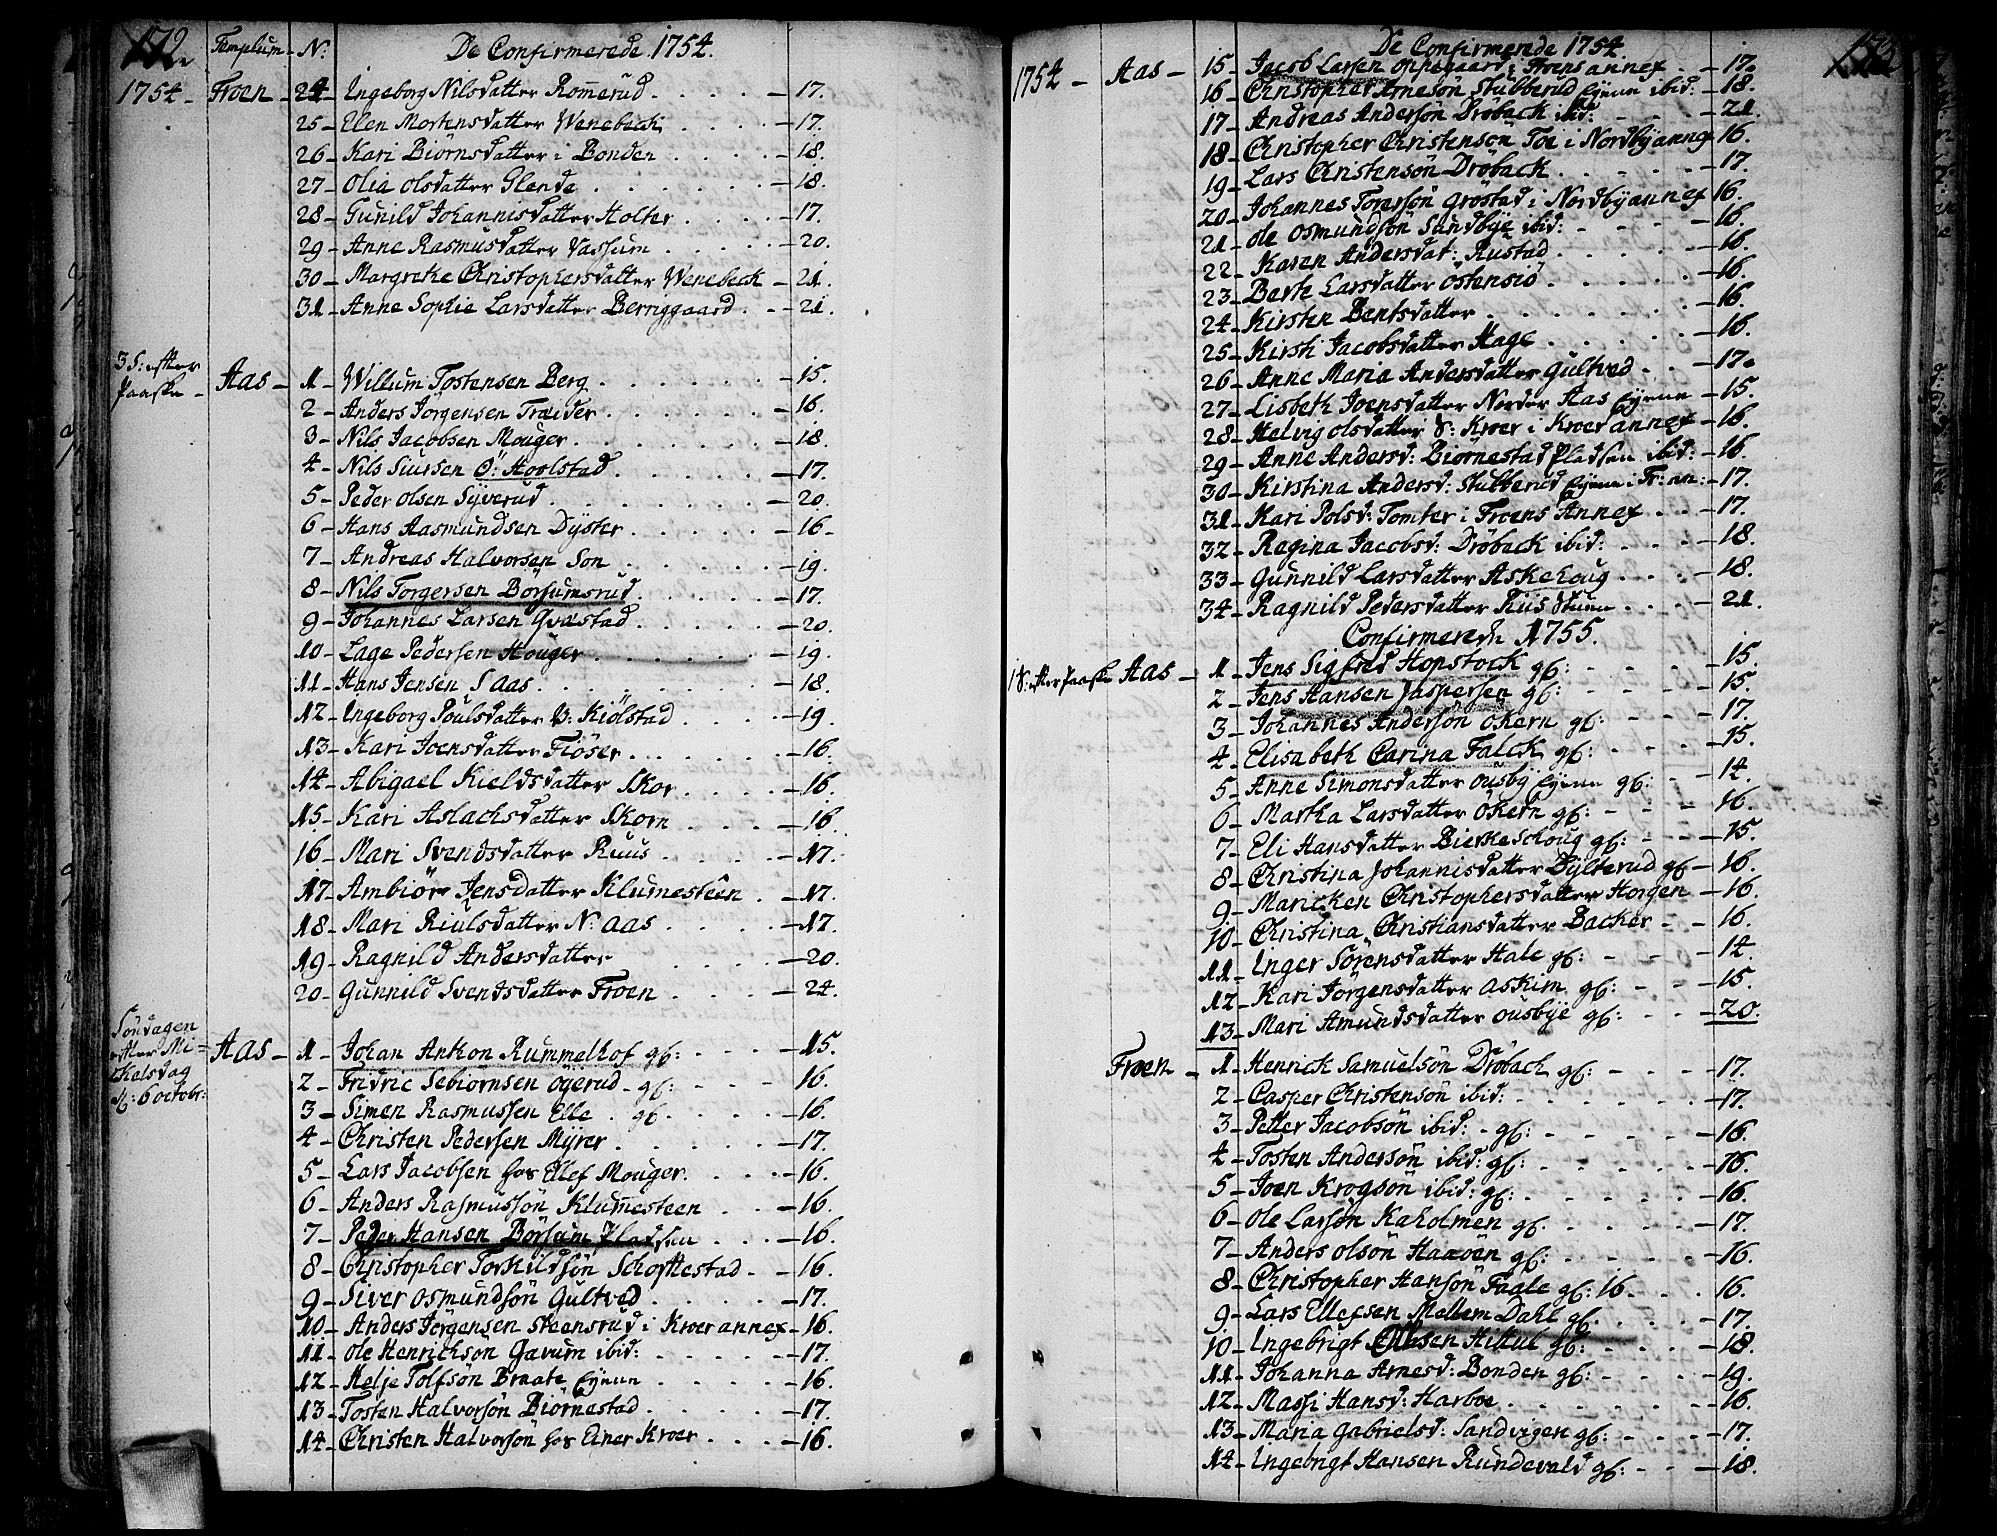 172
Templum - N:
De Confirmerede 1754.
1754 - Froen - 24 - Ingeborg Nilsdatter Romerud . . . . - 17.
25 - Elen Mortensdatter Wenebeck . . . . - 17.
26 - Kari Biörnsdatter i Bonden . . . . - 18.
27 - Olia Olsdatter Glende . . . . . . - 18.
28 - Gunild Johannisdatter Holter . . . . - 17.
29 - Anne Rasmusdatter Vassum . . . . - 20.
30 - Margrete Christophersdatter Wenebeck - 21.
31 - Anne Sophie Larsdatter Berriggaard . - 21.
3 S: efter Paaske - Aas - 1 - Willum Tostensen Berg . . . . . - 15.
2 - Anders Jörgensen Træider . . . . . - 16.
3 - Nils Jacobsen Mouger . . . . . . - 18.
4 - Nils Siursen Ö: Hoolstad . . . . . - 17.
5 - Peder Olsen Syverud . . . . . . - 20.
6 - Hans Aasmundsen Dyster . . . . . - 16.
7 - Andreas Halvorsen Son . . . . . - 19.
8 - Nils Torgersen Börsumsrud . . . . - 17.
9 - Johannes Larsen Qvæstad . . . . . - 20.
10 - Lage Pedersen Houger . . . . . . - 19.
11 - Hans Jensen S Aas . . . . . . . - 18.
12 - Ingeborg Poulsdatter V: Kiölstad . . . - 19.
13 - Kari Joensdatter Fiöser . . . . . - 16.
14 - Abigael Kieldsdatter Skor . . . . - 16.
15 - Kari Aslachsdatter Skorn . . . . - 16.
16 - Mari Svendsdatter Ruus . . . . - 17.
17 - Ambiör Jensdatter Klumesteen . - 17.
18 - Mari Riulsdatter N: Aas . . . . - 17.
19 - Ragnild Andersdatter . . . - 20.
20 - Gunnild Svendsdatter Froen . . . . - 24.
Söndagen efter Mi-
kelsdag
d: 6 octobr:
Aas - 1 - Johan Anton Rummelhof gf: . . . - 15.
2 - Fridric Sebiörnsen Ögerud - gf: . . . - 16.
3 - Simen Rasmussen Elle . gf. . . . . - 16.
4 - Christen Pedersen Myrer . . . . . - 17.
5 - Lars Jacobsen hos Ellef Mouger . . . - 16.
6 - Anders Rasmussön Klumesteen . . - 16.
7 - Peder Hansen Börsum Pladsen . . . - 16.
8 - Christopher Torkildsön Schoftestad . - 16.
9 - Siver Osmundsön Gultved . . . . . - 17.
10 - Anders Jörgensen Steensrud i Kroer annex - 16.
11 - Ole Henrichsön Garum ibid: . . . . - 17.
12 - Helje Tolfsön Braate Ejene . . . . - 16.
13 - Tosten Halvorsön Biörnestad . . . . - 17.
14 - Christen Halvorsön hos Einer Kroer . . - 16.
De Confirmerede 1754.
173
1754 - Aas - 15 - Jacob Larsen Oppegaard i Froens annex . - 17.
16 - Christopher Arnesön Stubberud Ejene ibid: - 18.
17 - Andreas Andersön Dröback ibid: - - - - 21.
18 - Christopher Christensön Toe i Nordby annex 16.
19 - Lars Christensön Dröback . . . . . - 17.
20 - Johannes Torersön Gröstad i Nordby annex 16.
21 - Ole Osmundsön Sundbye ibid: - - - - 16.
22 - Karen Andersdat: Rustad . . . . . - 16.
23 - Berth Larsdatter Östensiö . . . . - 16.
24 - Kirsten Bentsdatter . . . . . . - 16.
25 - Kirsti Jacobsdatter Hage . . . . . - 16.
26 - Anne Maria Andersdatter Gultved . . - 17.
27 - Lisbeth Joensdatter Nordre Aas Ejene - 15.
28 - Helvig Olsdatter V: Kroer i Kroer annex - 16.
29 - Anne Andersd: Biörnestad Pladsen ibid: - 16.
30 - Kirstina Andersd: Stubberud Ejene i Fr: an: - 17.
31 - Kari Polsd: Tomter i Froens Annex . . - 17.
32 - Ragina Jacobsd: Dröback ibid: - - - - 18.
33 - Gunnild Larsdatter Askehoug . . . . - 18.
34 - Ragnild Pedersdatter Riis Stuene . . . - 21.
Confirmerede 1755.
1 S: efter Paaske Aas - 1 - Jens Sigfrid Hopstock gf: - - - - 15.
2 - Jens Hansen Jaspersen gf: - - - - 15.
3 - Johannes Andersön Økern gf: - - - 17.
4 - Elisabeth Carina Falck gf: - - - 15.
5 - Anne Simonsdatter Ousby Ejene gf: - - 14.
6 - Martha Larsdatter Økern gf: - - - 16.
7 - Eli Hansdatter Bierke Schoug gf: - - - 15.
8 - Christina Johannisdatter Dylterud gf - 16.
9 - Maricken Christophersdatter Horgen - 16.
10 - Christina Christiansdatter Backer - - 16.
11 - Inger Sörensdatter Hale gf: - - - 14.
12 - Kari Jörgensdatter Askim gf: - - - 15.
13 - Mari Amundsdatter Ousbye gf: - - - 20.
Froen - 1 - Henrick Samuelsön Dröbach gf: - - - - 17.
2 - Casper Christensön ibid: - - - - - 17.
3 - Petter Jacobsön ibid: - gf: - - - - - 16.
4 - Tosten Andersön ibid: gf: - - - - - 16.
5 - Joen Krogsön ibid: gf: - - - - - 16.
6 - Ole Larsön Kaholmen gf: . . . . . - 17.
7 - Anders Olsön Haavöen gf: . . . . . - 16.
8 - Christopher Hansön Faale gf: 16 . . . 16.
9 - Lars Ellefsen Mellem Dahl gf. . . . . - 17.
10 - Ingebrigt Ellesen Hittul gf: . . . . - 18.
11 - Johanna Arnesd: Bonden gf: . . . - 19.
12 - Massi Hansd: Harboe . . . . . . - 16.
13 - Maria Gabrielsd: Sandvigen gf: . . . - 17.
14 - Ingebrigt Hansen Rundevald gf: - - - 18.